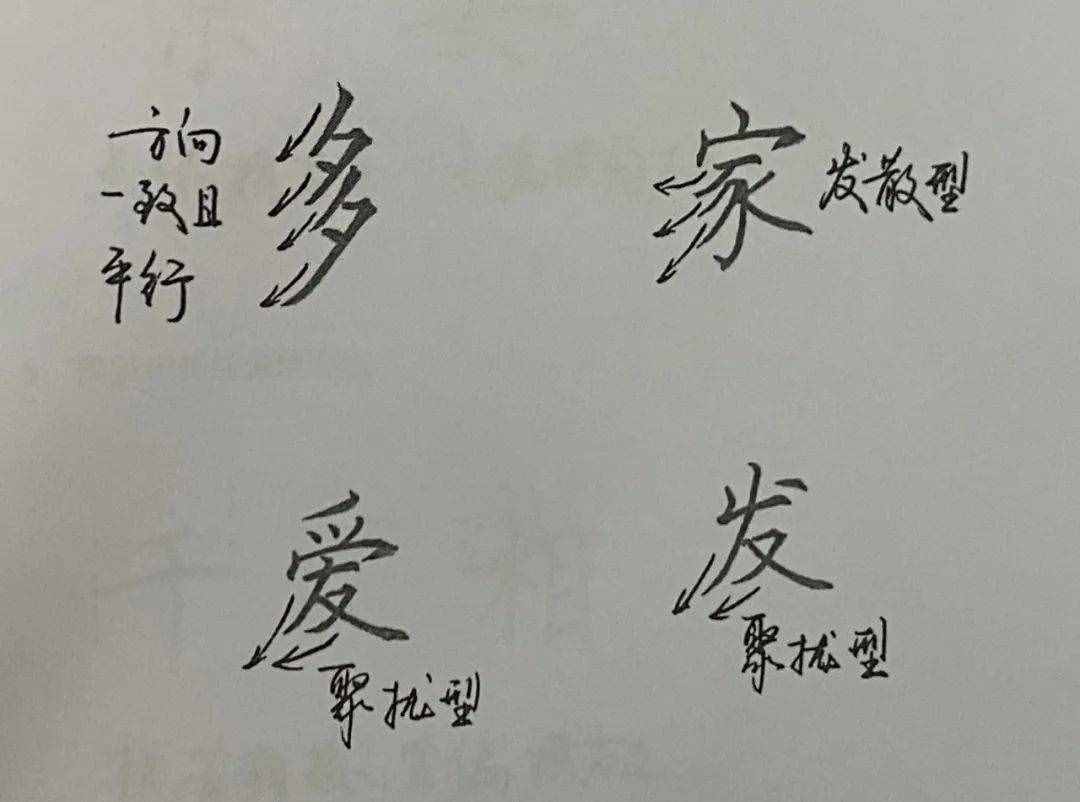 方向
一致且
平行
多
家
发散型
爱
聚拢型
发
聚拢型